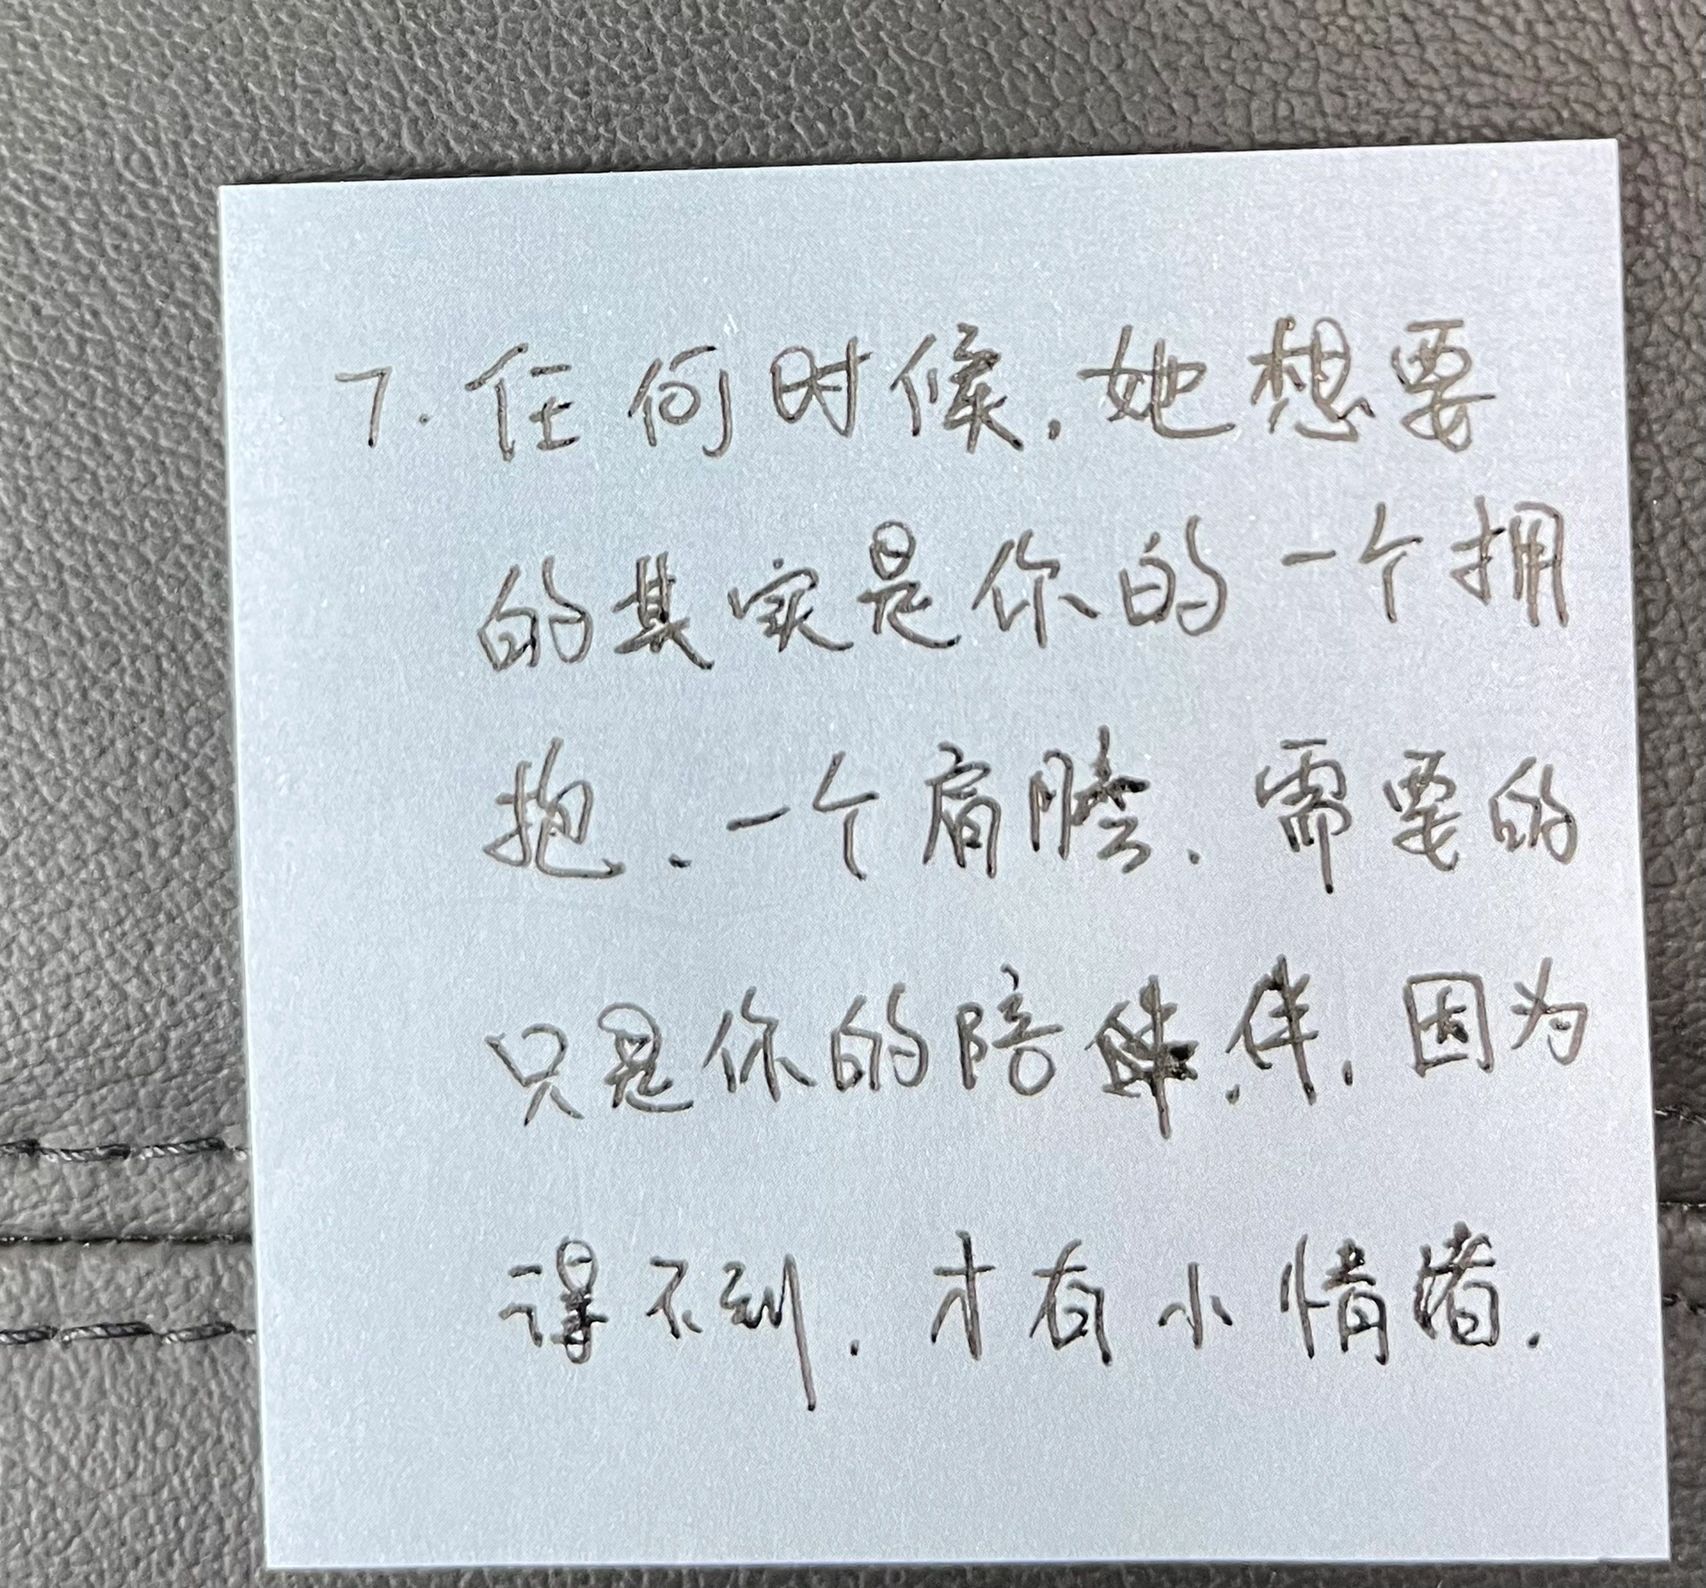 7. 任何时候, 她想要
的其实是你的一个拥
抱、一个肩膀、需要的
只是你的陪伴, 因为
得不到, 才有小情绪.